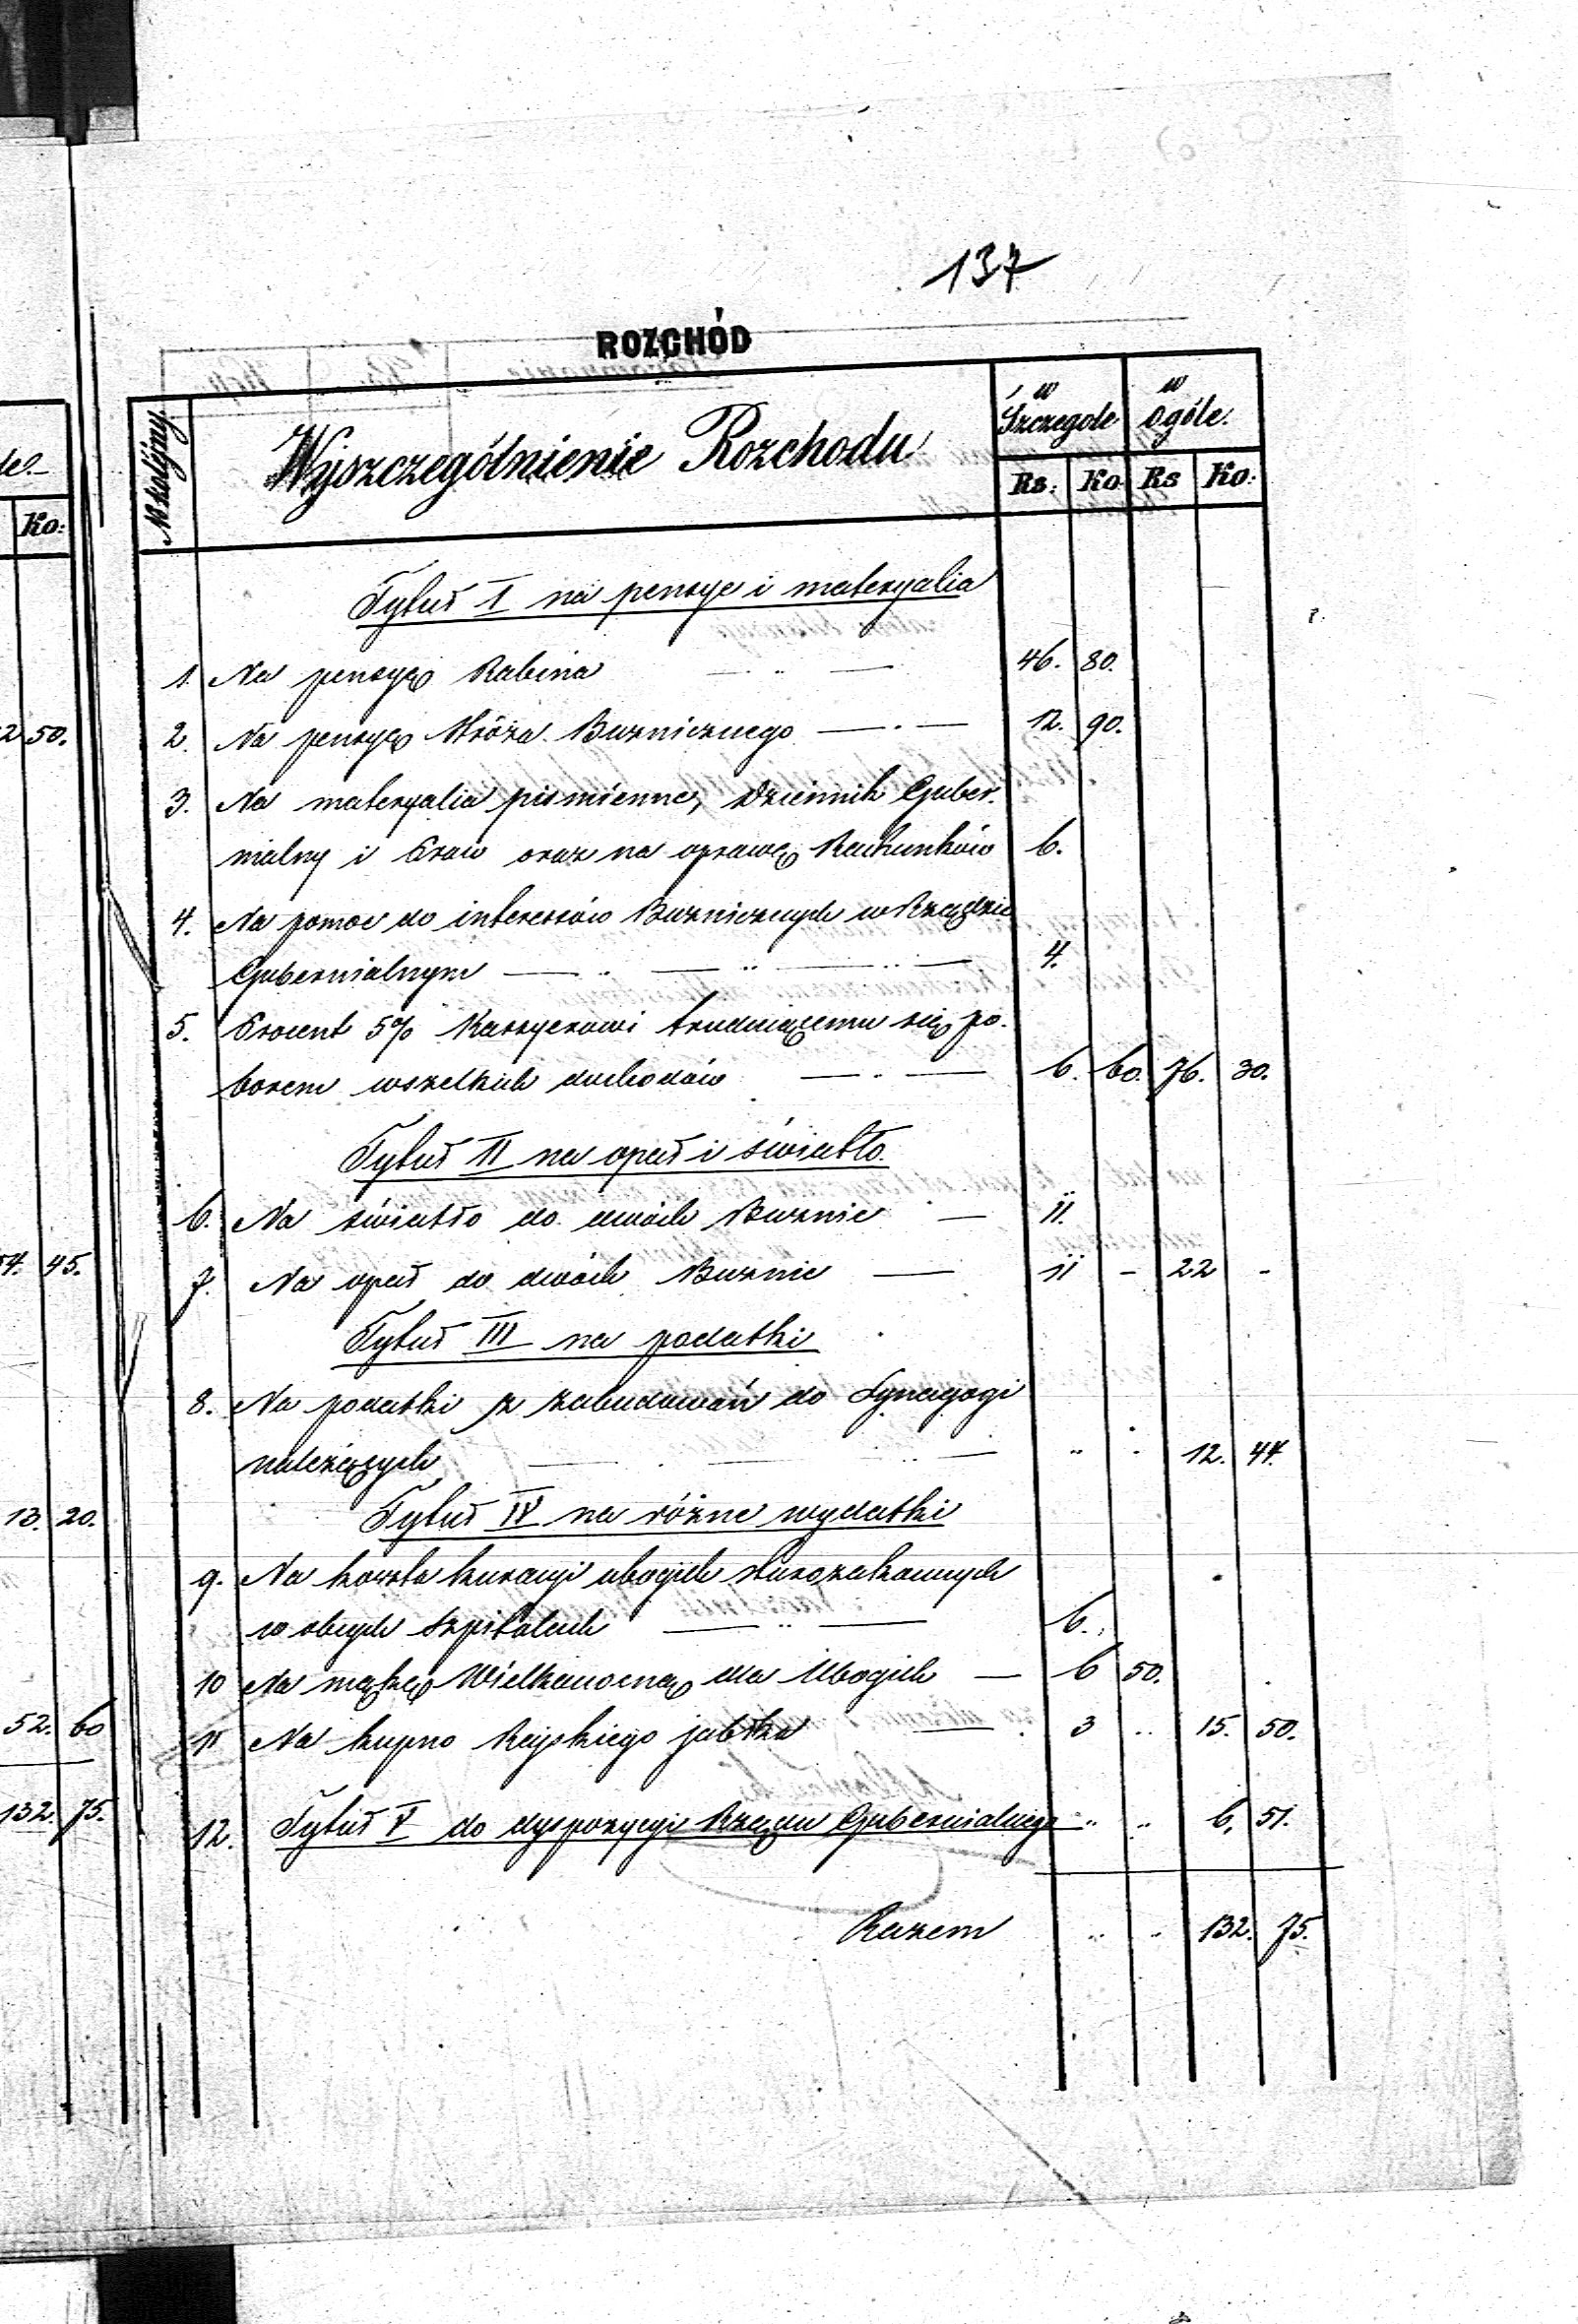 137
ROZCHÓD
№ kolejny
Wyszczególnienie Rozchodu
w Szczególe
w ogóle.
Rs: Ko. Rs Ko:
Tytuł I na pensye i materyalia
1. Na pensyę Rabina 46. 80.
2. Na pensyę Stróża Bużnicznego 12. 90.
3. Na materyalia piśmienne, Dziennik Guber.
nialny i Praw oraz na oprawę Rachunków 6.
4. Na pomoc do interessów Bużnicznych w Rządzie
Gubernialnym 4.
5. Procent 5% Kassyerowi trudniącemu się po.
borem wszelkich dochodów 6. 60. 76. 30.
Tytuł II na opał i światło.
6. Na światło do dwóch Bużnic 11.
7. Na opał do dwóch Bużnic 11 - 22 -
Tytuł III na podatki
8. Na podatki z zabudowań do Synagogi
należących " " 12. 44.
Tytuł IV na różne wydatki
9. Na koszta kuracyi ubogich starozakonnych
w obcych Szpitalach 6.
10 Na mąkę Wielkanocną dla Ubogich 6 50.
11 Na kupno Rajskiego jabłka 3 " 15. 50.
12. Tytuł V do dyspozycyi Rządu Gubernialnego " " 6. 51.
Razem " " 132. 75.
Ko:
2 50.
54. 45.
13. 20.
52. 60
132. 75.